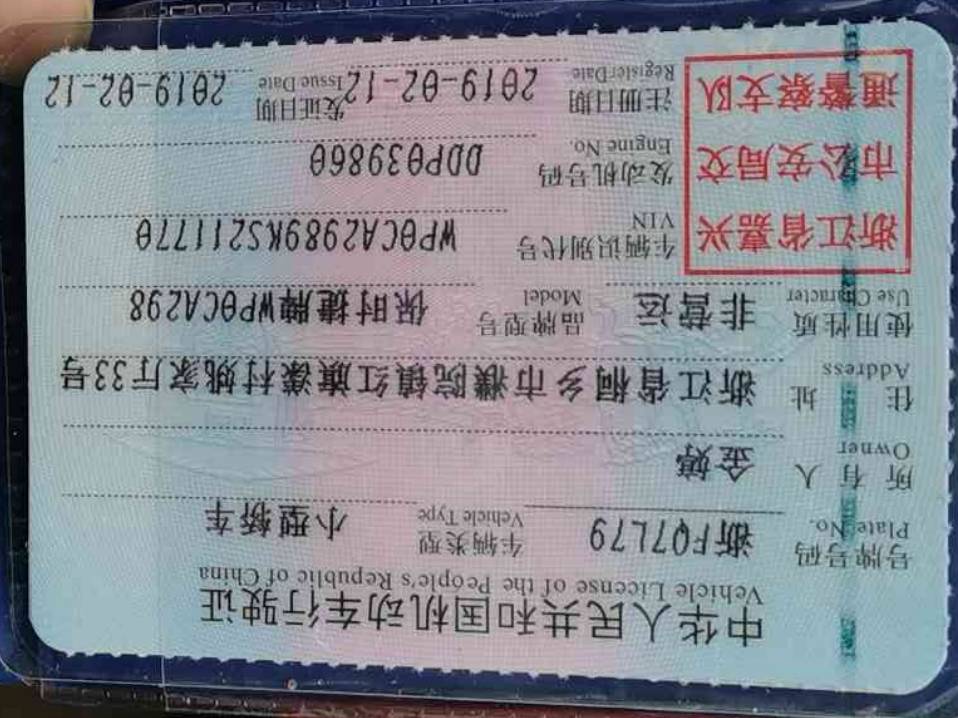 中华人民共和国机动车行驶证
Vehicle License of the People's Republic of China
号牌号码 浙FQ7L79 车辆类型 小型轿车
Plate No. Vehicle Type
所有人 金婷
Owner
住址 浙江省桐乡市濮院镇红旗漾村姚家厅33号
Address
使用性质 非营运 品牌型号 保时捷牌WP0CA298
Use Character Model
浙江省嘉兴
市公安局交
通警察支队
车辆识别代号 WP0CA2989KS211770
VIN
发动机号码 DDP039860
Engine No.
注册日期 2019-02-12 发证日期 2019-02-12
Register Date Issue Date